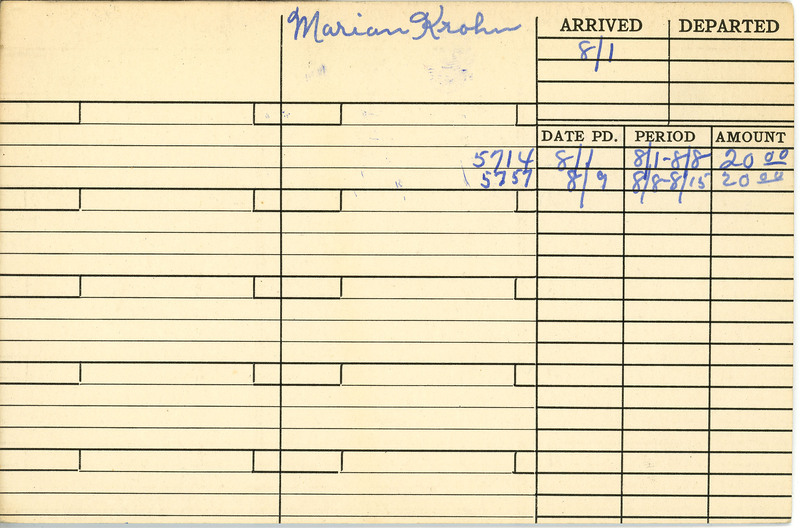 Marian Krohn
ARRIVED DEPARTED
8/1
DATE PD. PERIOD AMOUNT
5714 8/1 8/1-8/8 20 00
5757 8/9 8/8-8/15 20 00